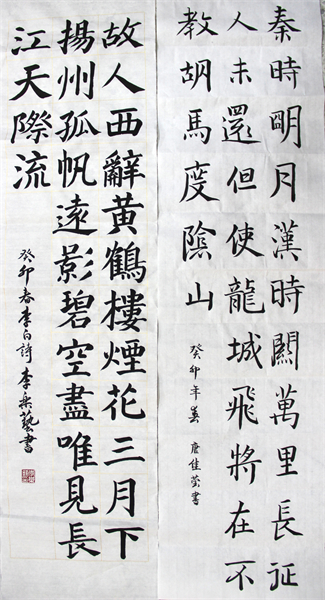 秦時明月漢時關萬里長征
人未還但使龍城飛將在不
教胡馬度陰山
癸卯年春 唐佳莹書
故人西辭黄鶴樓煙花三月下
揚州孤帆遠影碧空盡唯見長
江天際流
癸卯春李白詩 李乐藝書